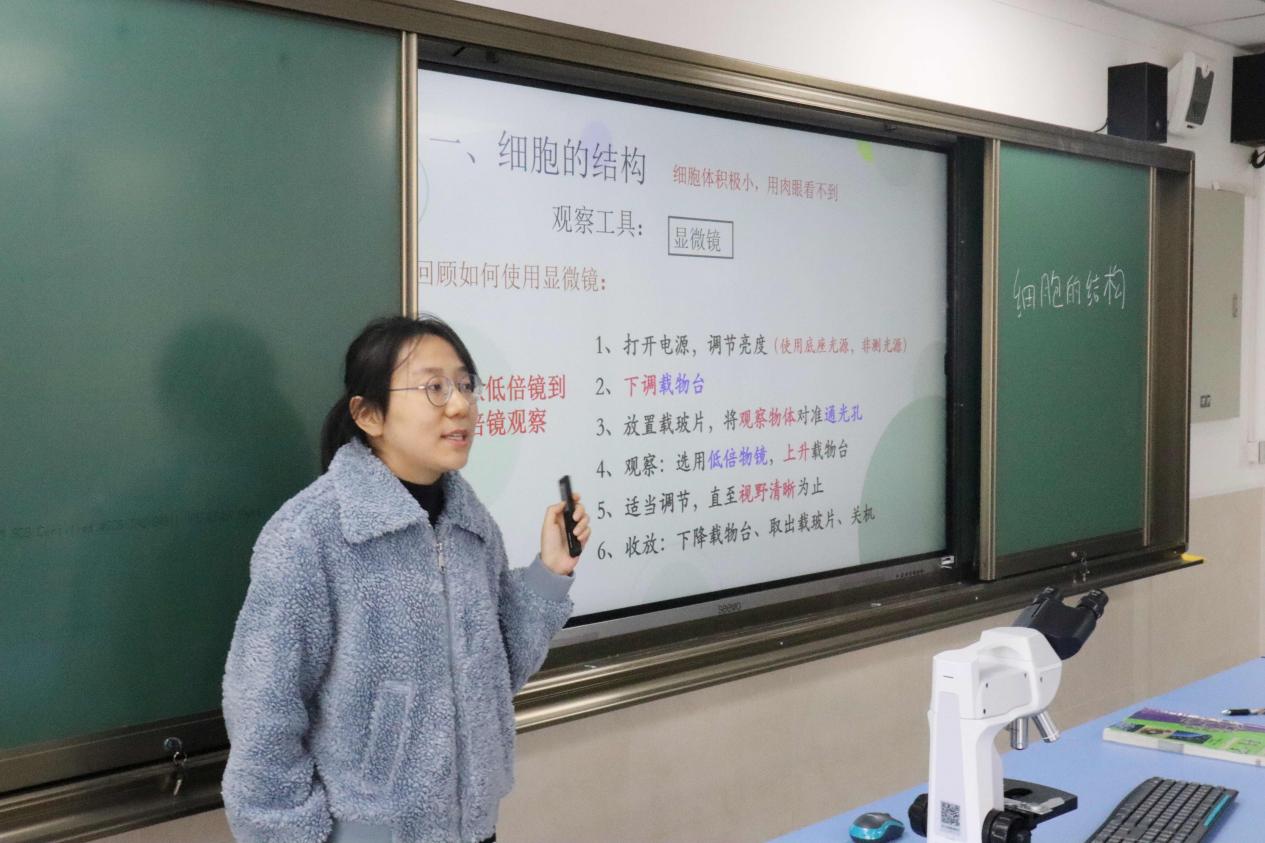 一、细胞的结构
细胞体积极小，用肉眼看不到
观察工具：
显微镜
回顾如何使用显微镜：
低倍镜到
倍镜观察
1、打开电源，调节亮度（使用底座光源，非测光源）
2、下调载物台
3、放置载玻片，将观察物体对准通光孔
4、观察：选用低倍物镜，上升载物台
5、适当调节，直至视野清晰为止
6、收放：下降载物台、取出载玻片、关机
seewo
细胞的结构